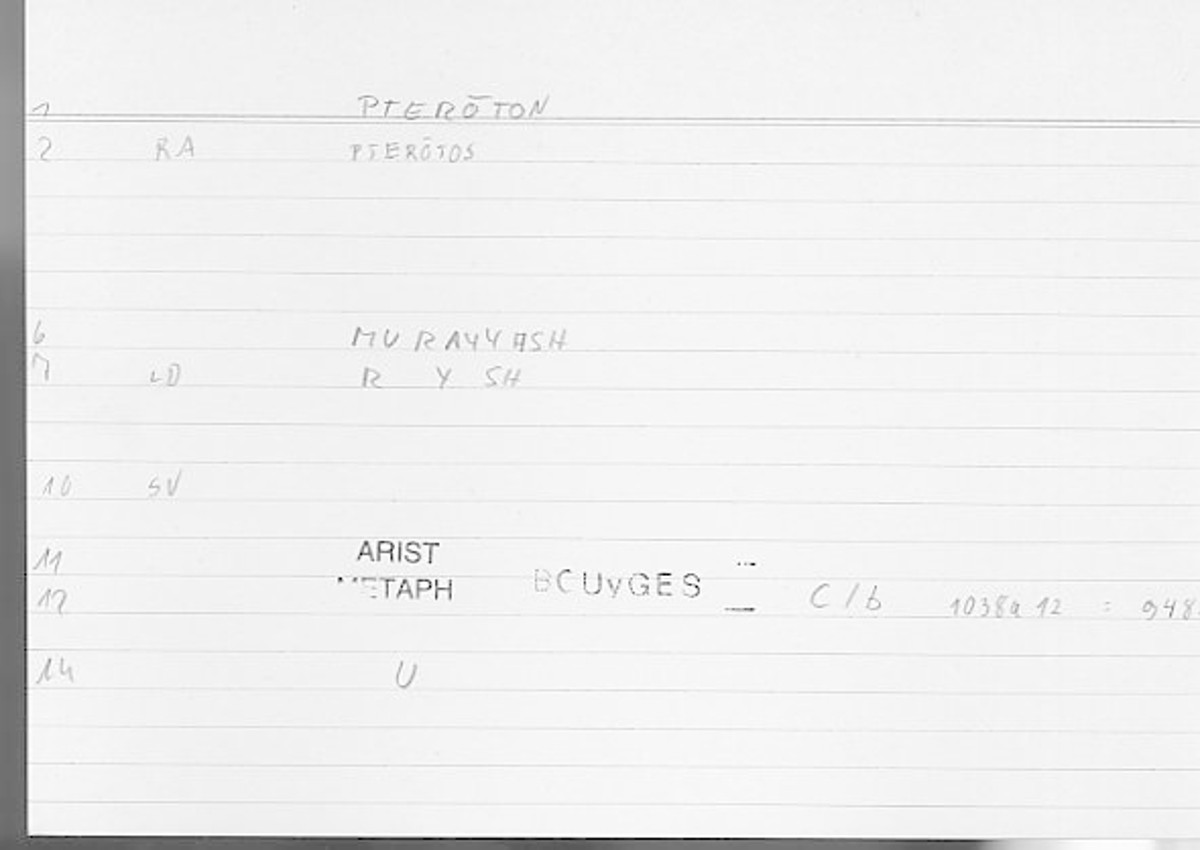 1 PTERŌTON
2 RA PTERŌTOS
6 MURAYYASH
7 LD R Y SH
10 SV
11 ARIST
12 METAPH BOUyGES C/b 1038a 12 : 948
14 U